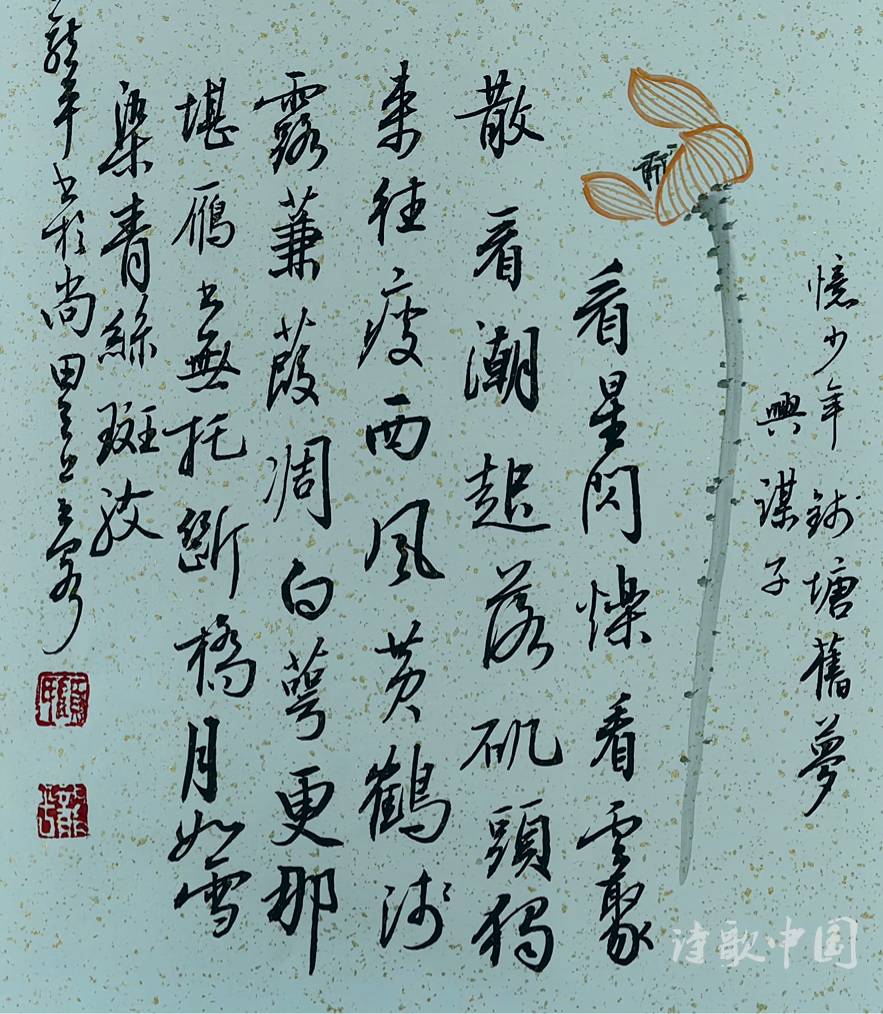 憶少年 錢塘舊夢
興謀子
看星閃爍看雲聚
散看潮起落磯頭獨
來往瘦西風黃鶴淺
露蒹葭凋白萼更那
堪雁書無托斷橋月如雪
染青絲斑駁
龍年書於尚田
诗歌中国